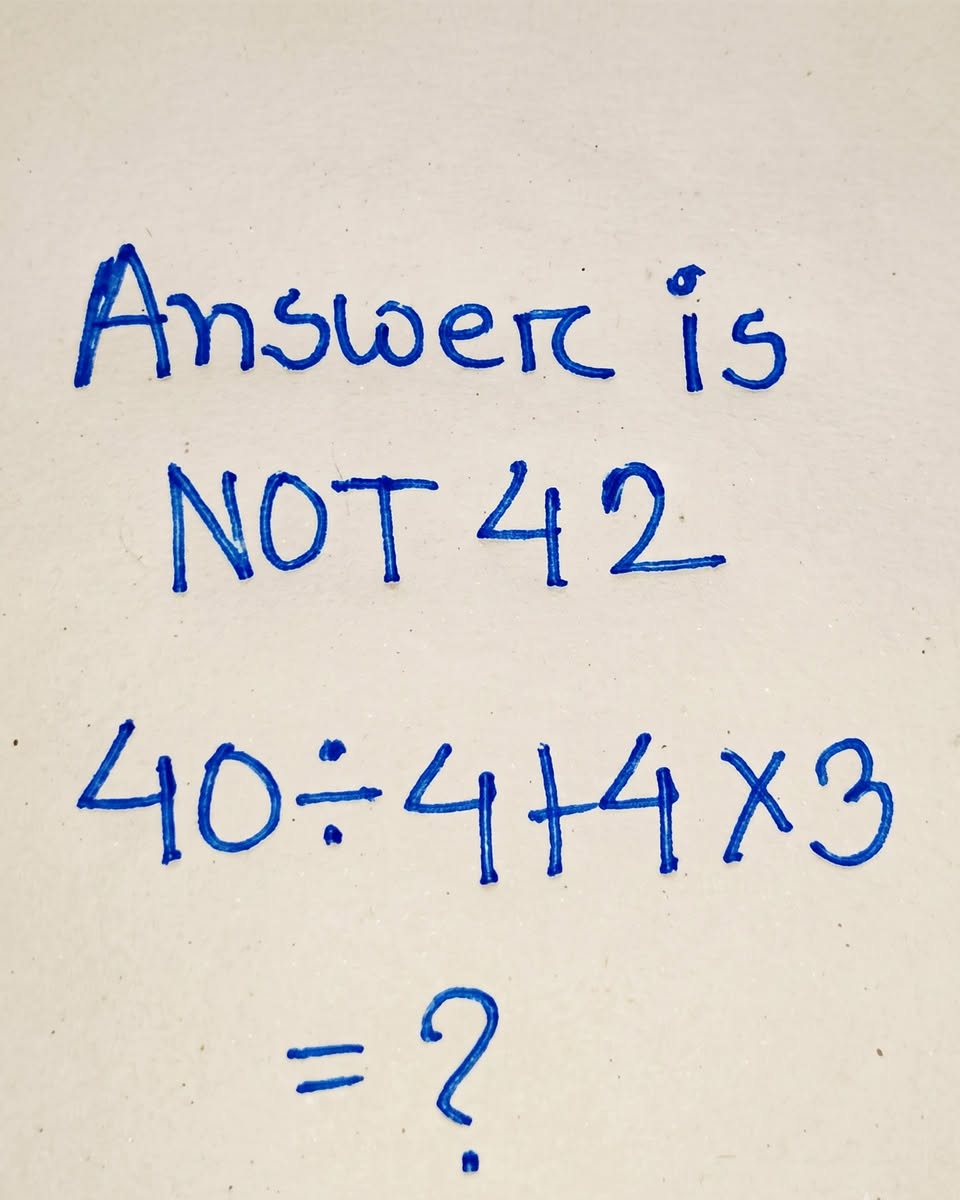 Answer is
NOT 42
40÷4+4×3
= ?